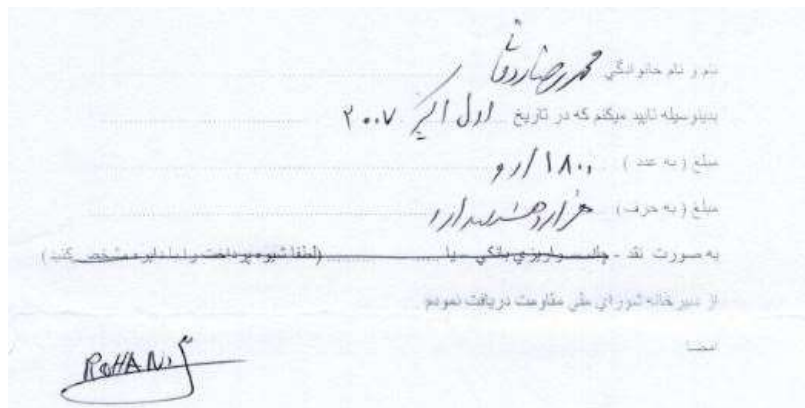 نام و نام خانوادگي محمد رضا روحاني
بدينوسيله تاييد ميكنم كه در تاريخ اول اكتبر ۲۰۰۷
مبلغ ( به عدد ) ۱۸۰۰ ارو
مبلغ ( به حرف ) هزار و هشتصد ارو
به صورت نقد - چك - واريزي بانكي - يا (لطفا شيوه پرداخت را با دايره مشخص كنيد)
از دبيرخانه شوراي ملي مقاومت دريافت نمودم
امضا
ROHANI